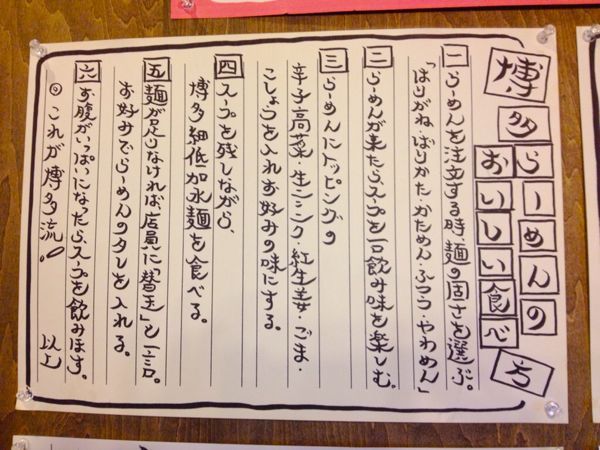 博多らーめんの
おいしい食べ方
一 らーめんを注文する時、麺の固さを選ぶ。
「はりがね・ばりかた・かためん・ふつう・やわめん」
二 らーめんが来たらスープを一口飲み味を楽しむ。
三 らーめんにトッピングの
辛子高菜・生ニンニク・紅生姜・ごま・
こしょうを入れお好みの味にする。
四 スープを残しながら、
博多細低加水麺を食べる。
五 麺が足りなければ、店員に「替玉」と一言。
お好みでらーめんのタレを入れる。
六 お腹がいっぱいになったら、スープを飲みほす。
◎ これが博多流!! 以上